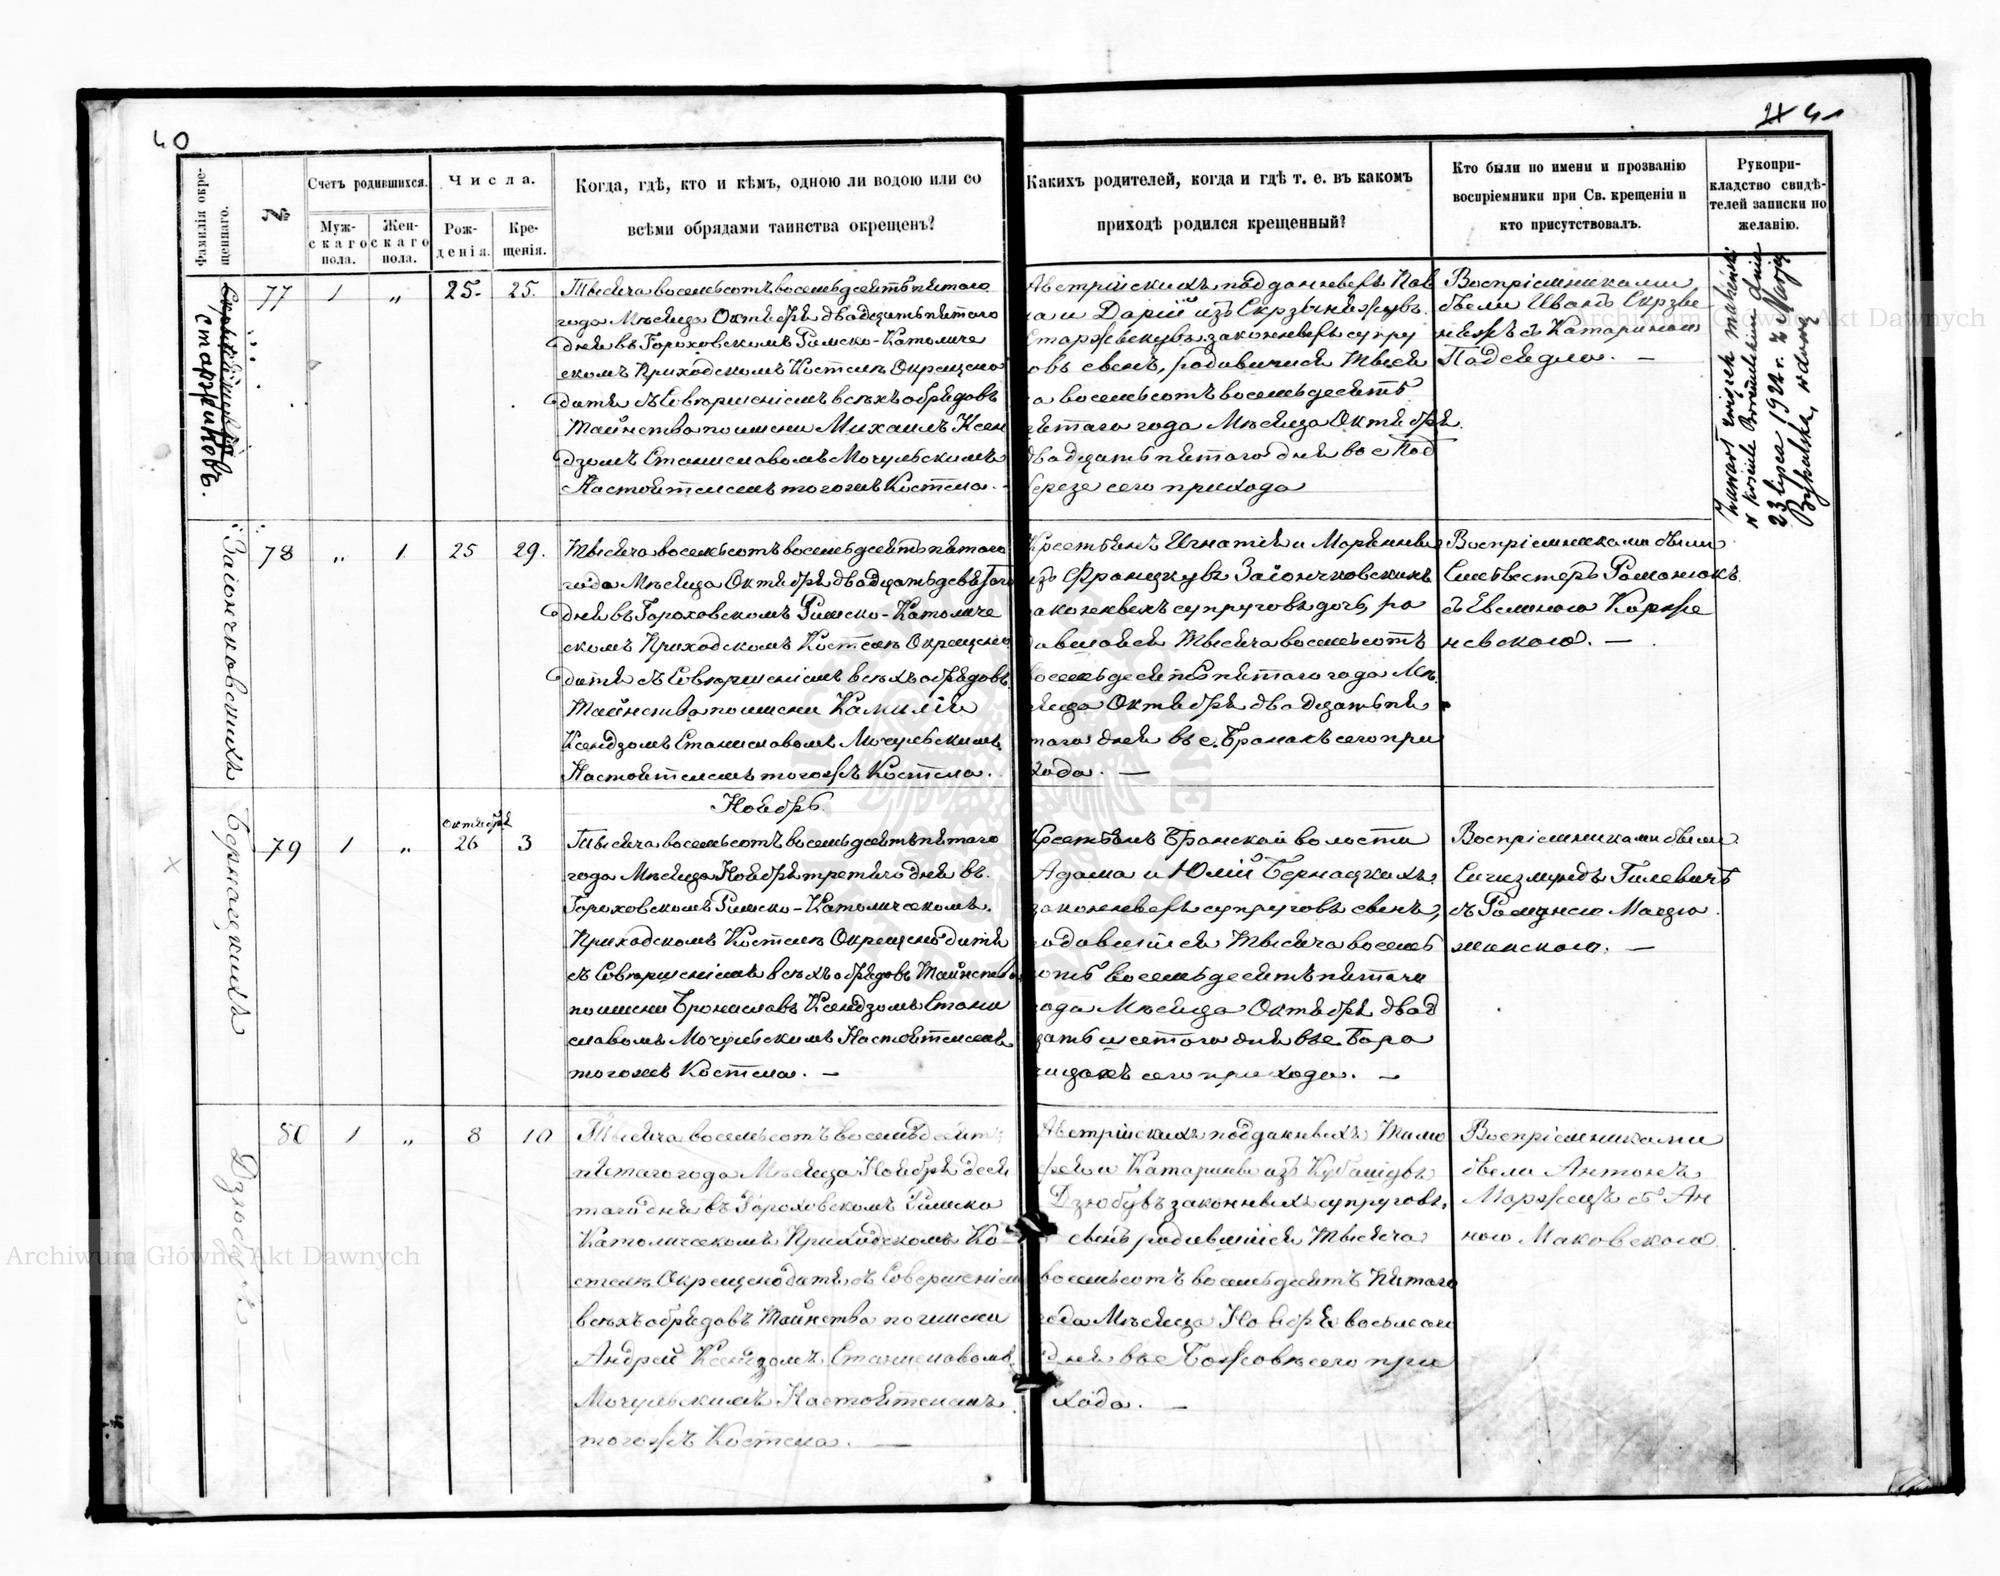 40
41
Фамилія окрещеннаго.
№
Счетъ родившихся.
Мужскаго пола.
Женскаго пола.
Числа.
Рожденія.
Крещенія.
Когда, гдѣ, кто и кѣмъ, одною ли водою или со
всѣми обрядами таинства окрещенъ?
Какихъ родителей, когда и гдѣ т. е. въ какомъ
приходѣ родился крещенный?
Кто были по имени и прозванію
воспріемники при Св. крещеніи и
кто присутствовалъ.
Рукопри-
кладство свидѣ-
телей записки по
желанію.
Старжиковъ.
77 1 „ 25. 25.
Тысяча восемьсотъ восемьдесятъ пятаго
года Мѣсяца Октября двадцать пятаго
дня въ Гороховскомъ Римско-Католиче
скомъ Приходскомъ Костелѣ Окрещено
дитя съ Совершеніемъ всѣхъ обрядовъ
Таинства по имени Михаилъ Ксен
дзомъ Станиславомъ Мочульскимъ
Настоятелемъ тогожъ Костела. -
Австрійскихъ подданныхъ Пав
ла и Дарій изъ
законныхъ супру
овъ сынъ, родившійся Тыся
ча восемьсотъ восемьдесятъ
пятаго года Мѣсяца Октября
двадцать пятаго дня во с Под
березе сего прихода
Воспріемниками
были Иванъ Скрзы
съ Катариною
Zawarł związek małżeński
w kościele
23 lipca 1922 r. z Marją
Зайончковскихъ
78 „ 1 25 29.
Тысяча восемьсотъ восемьдесятъ пятаго
года Мѣсяца Октября двадцать девятаго
дня въ Гороховскомъ Римско-Католиче
скомъ Приходскомъ Костелѣ Окрещено
дитя съ Совершеніемъ всѣхъ обрядовъ
Таинства по имени Камилія
Ксендзомъ Станиславомъ Мочульскимъ
Настоятелемъ тогожъ Костела.
Крестьянъ Игнатія и Маріанны
изъ Францкувъ Заіончковскихъ
законныхъ супруговъ дочь, ро
дившаяся Тысяча восемьсотъ
восемьдесятъ пятаго года Мѣ
сяца Октября двадцать пя
таго дня въ с. Бранахъ сего при
хода. —
Воспріемниками были
Сильвестеръ Романюкъ
съ Евелиною Корже
невскою. —
Бернацкихъ
Ноябрь.
октября
79 1 „ 26 3
Тысяча восемьсотъ восемьдесятъ пятаго
года Мѣсяца Ноября третяго дня въ
Гороховскомъ Римско-Католическомъ
Приходскомъ Костелѣ Окрещено дитя
съ Совершеніемъ всѣхъ обрядовъ Таинства
по имени Брониславъ Ксендзомъ Стани
славомъ Мочульскимъ Настоятелемъ
тогожъ Костела. —
Крестьянъ Бранской волости
Адама и Юліи Бернацкихъ
законныхъ супруговъ сынъ,
родившійся Тысяча восемь
сотъ восемьдесятъ пятаго
года Мѣсяца Октября двад
цать шестого дня въ с
сего прихода. —
Воспріемниками были
Сигизмундъ Гилевичъ
съ
80 1 „ 8 10
Тысяча восемьсотъ восемьдесятъ
пятаго года Мѣсяца Ноября деся
таго дня въ Гороховскомъ Римско
Католическомъ Приходскомъ Ко
стелѣ Окрещено дитя съ Совершеніемъ
всѣхъ обрядовъ Таинства по имени
Андрей Ксендзомъ Станиславомъ
Мочульскимъ Настоятелемъ
тогожъ Костела. —
Австрійскихъ подданныхъ Тимо
фея и Катарины изъ
Дзюбувъ законныхъ супруговъ
сынъ родившійся Тысяча
восемьсотъ восемьдесятъ пятаго
года Мѣсяца Ноября восьмаго
дня въ с Божовѣ сего при
хода. —
Воспріемниками
были Антонъ
съ Ан
ною Маковскою
Archiwum Główne Akt Dawnych
Archiwum Główne Akt Dawnych